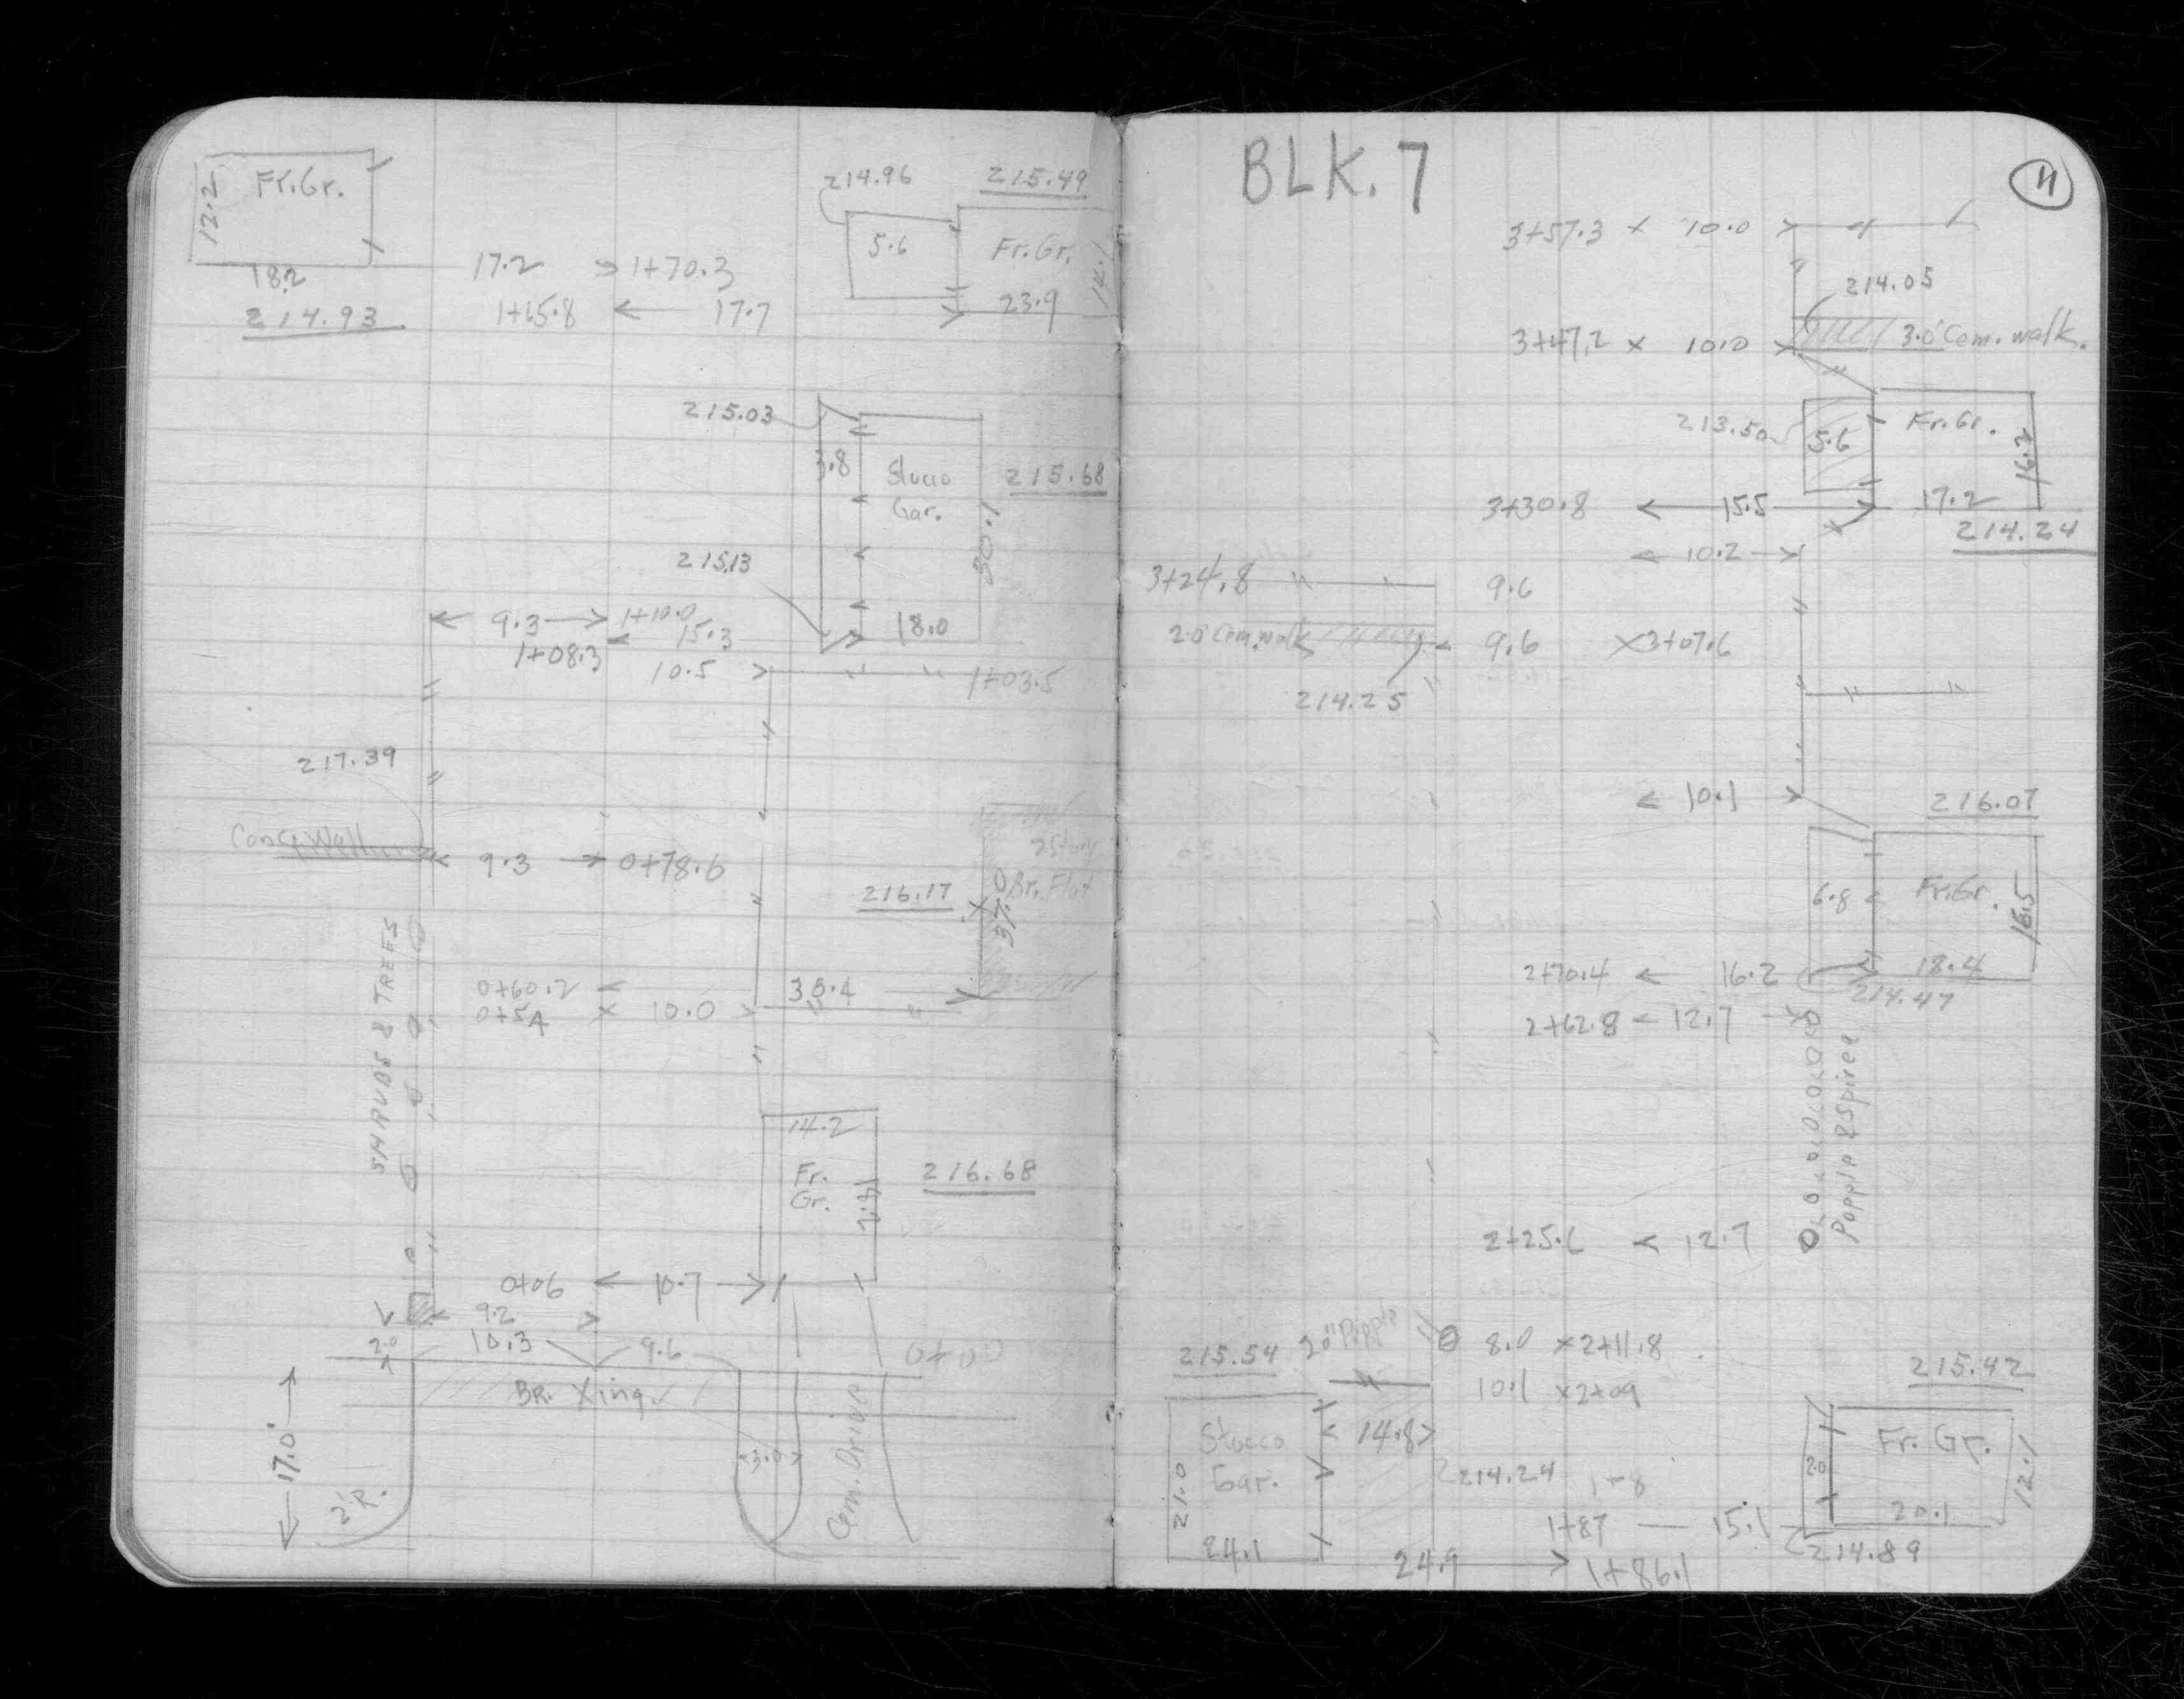 Fr.Gr.
13.2
18.2
214.93
214.96
215.49
5.6
Fr.Gr.
14.1
23.9
17.2 1+70.3
1+65.8 17.7
215.03
3.8
Stucco
Gar.
215.68
30.1
215.13
18.0
9.3 1+10.0
1+08.3 15.3
10.5 1+03.5
217.39
Conc. Wall
9.3 0+78.6
2 Story
Br. Flat
216.17
37.0
SHRUBS & TREES
0+60.2 38.4
0+54 10.0
14.2
Fr.
Gr.
18.2
216.68
0+06 10.7
9.2
2.0 10.3 9.6 0+00
BR. Xing.
17.0'
2'R.
3.0
Cem. Drive
BLK. 7
11
3+57.3 x 10.0
214.05
3+47.2 x 10.0 3.0' Cem. walk.
213.50
5.6
Fr.Gr.
16.2
3+30.8 15.5 17.2
214.24
10.2
3+24.8 9.6
2.0' Cem. walk 9.6 x3+07.6
214.25
10.1
216.07
6.8
Fr.Gr.
16.5
2+70.4 16.2 18.4
214.47
2+62.8 12.7
Popple & Spirea
2+25.6 12.7
20" Popple 8.0 x2+11.8
215.54
10.1 x2+09
215.42
Stucco
Gar.
21.0
24.1
14.8
214.24 1+8
1+87 15.1
24.9 1+86.1
2.0
Fr. Gr.
12.1
20.1
214.89